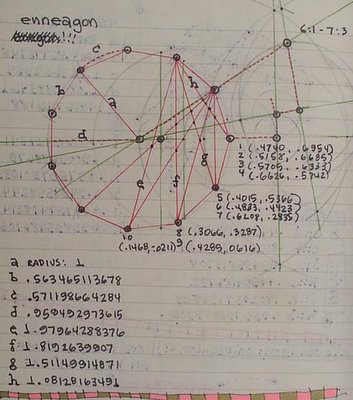 enneagon
c
6:1 - 7:3
b
h
a
d
g
e
f
1 (.4740, .6954)
2 (.5158, .6685)
3 (.5705, .6333)
4 (.6626, .5742)
5 (.4015, .5366)
6 (.4833, .4423)
7 (.6208, .2835)
10 8 (.3066, .3287)
9
(.1468, .0211) (.4285, .0616)
a RADIUS: 1
b .563465113678
c .571198664284
d .959492973615
e 1.97964288376
f 1.8192639907
g 1.51149914871
h 1.08128163491